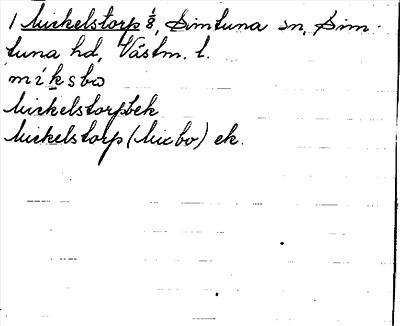 1 Mickelstorp 1/8, Simtuna sn, Sim-
tuna hd, Västm. l.
miksbo
Mickelstorp bek
Mickelstorp (Micbo) ek.